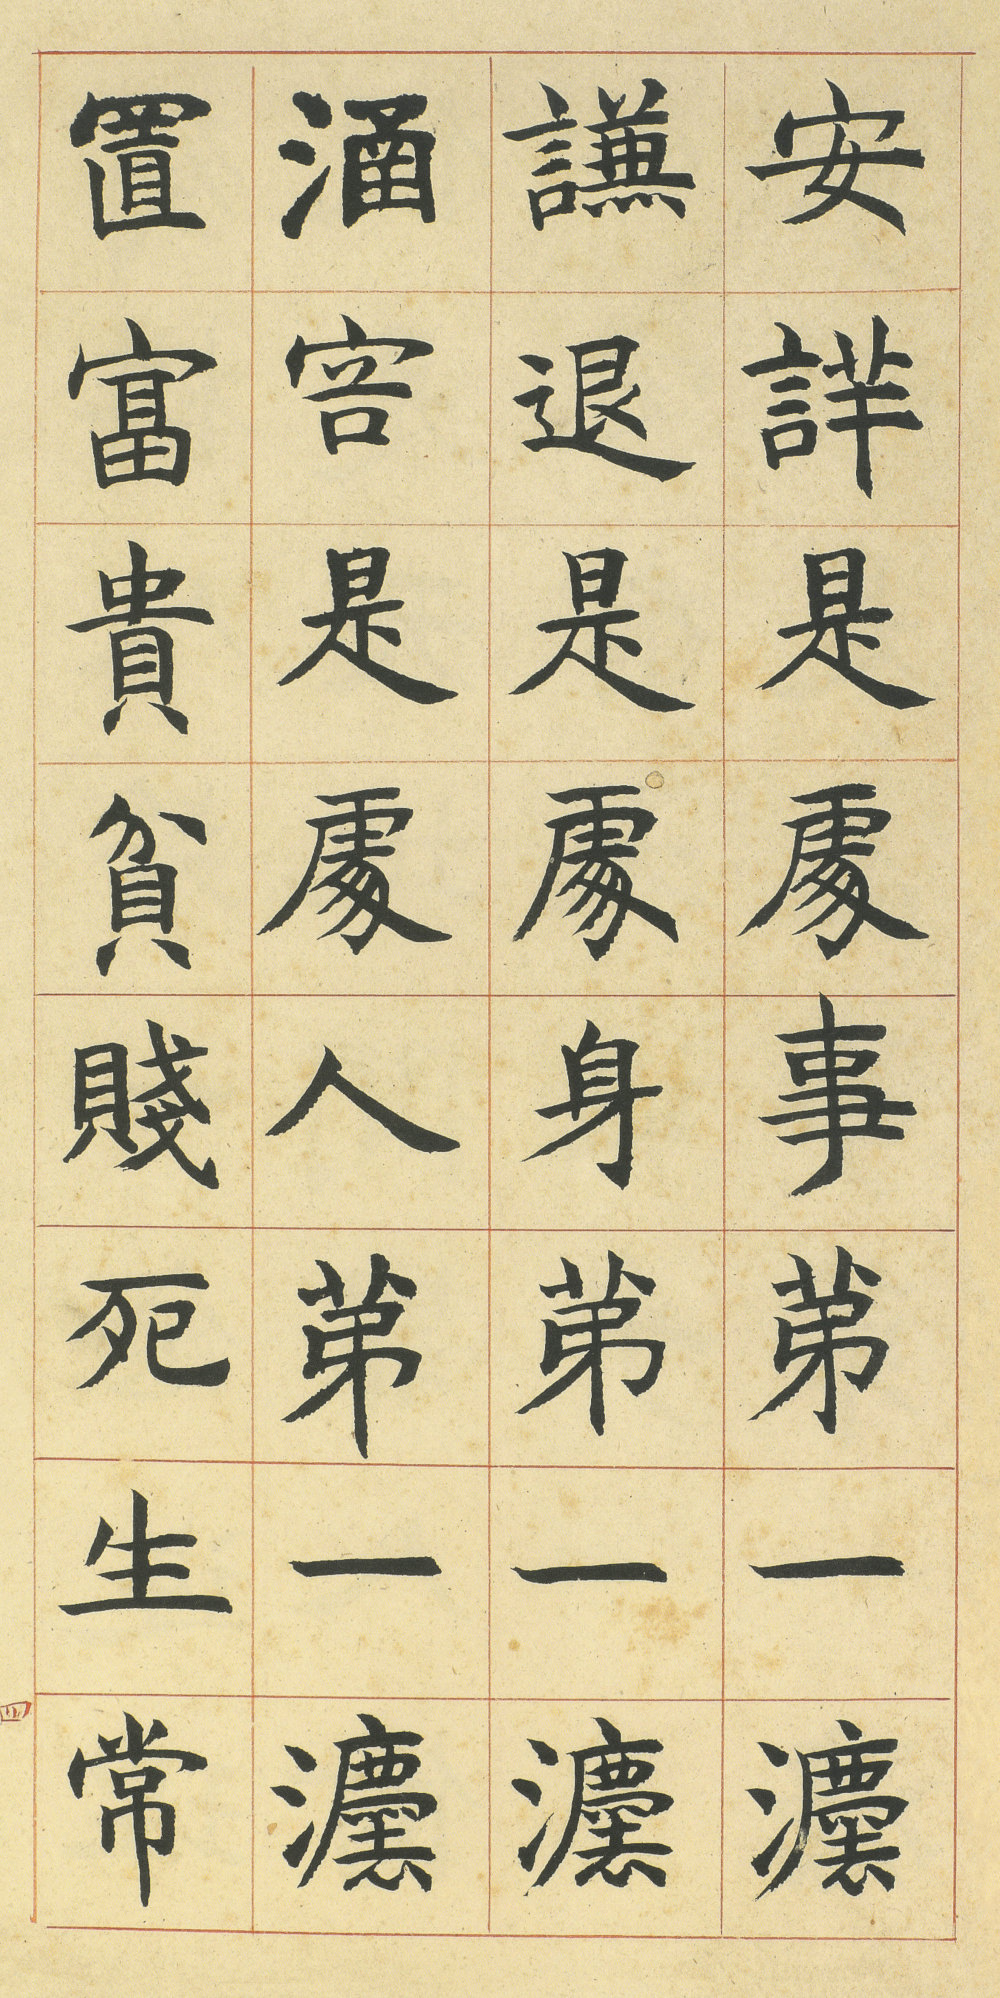 安詳是處事苐一灋
謙退是處身苐一灋
涵容是處人苐一灋
置富貴貧賤死生常
四